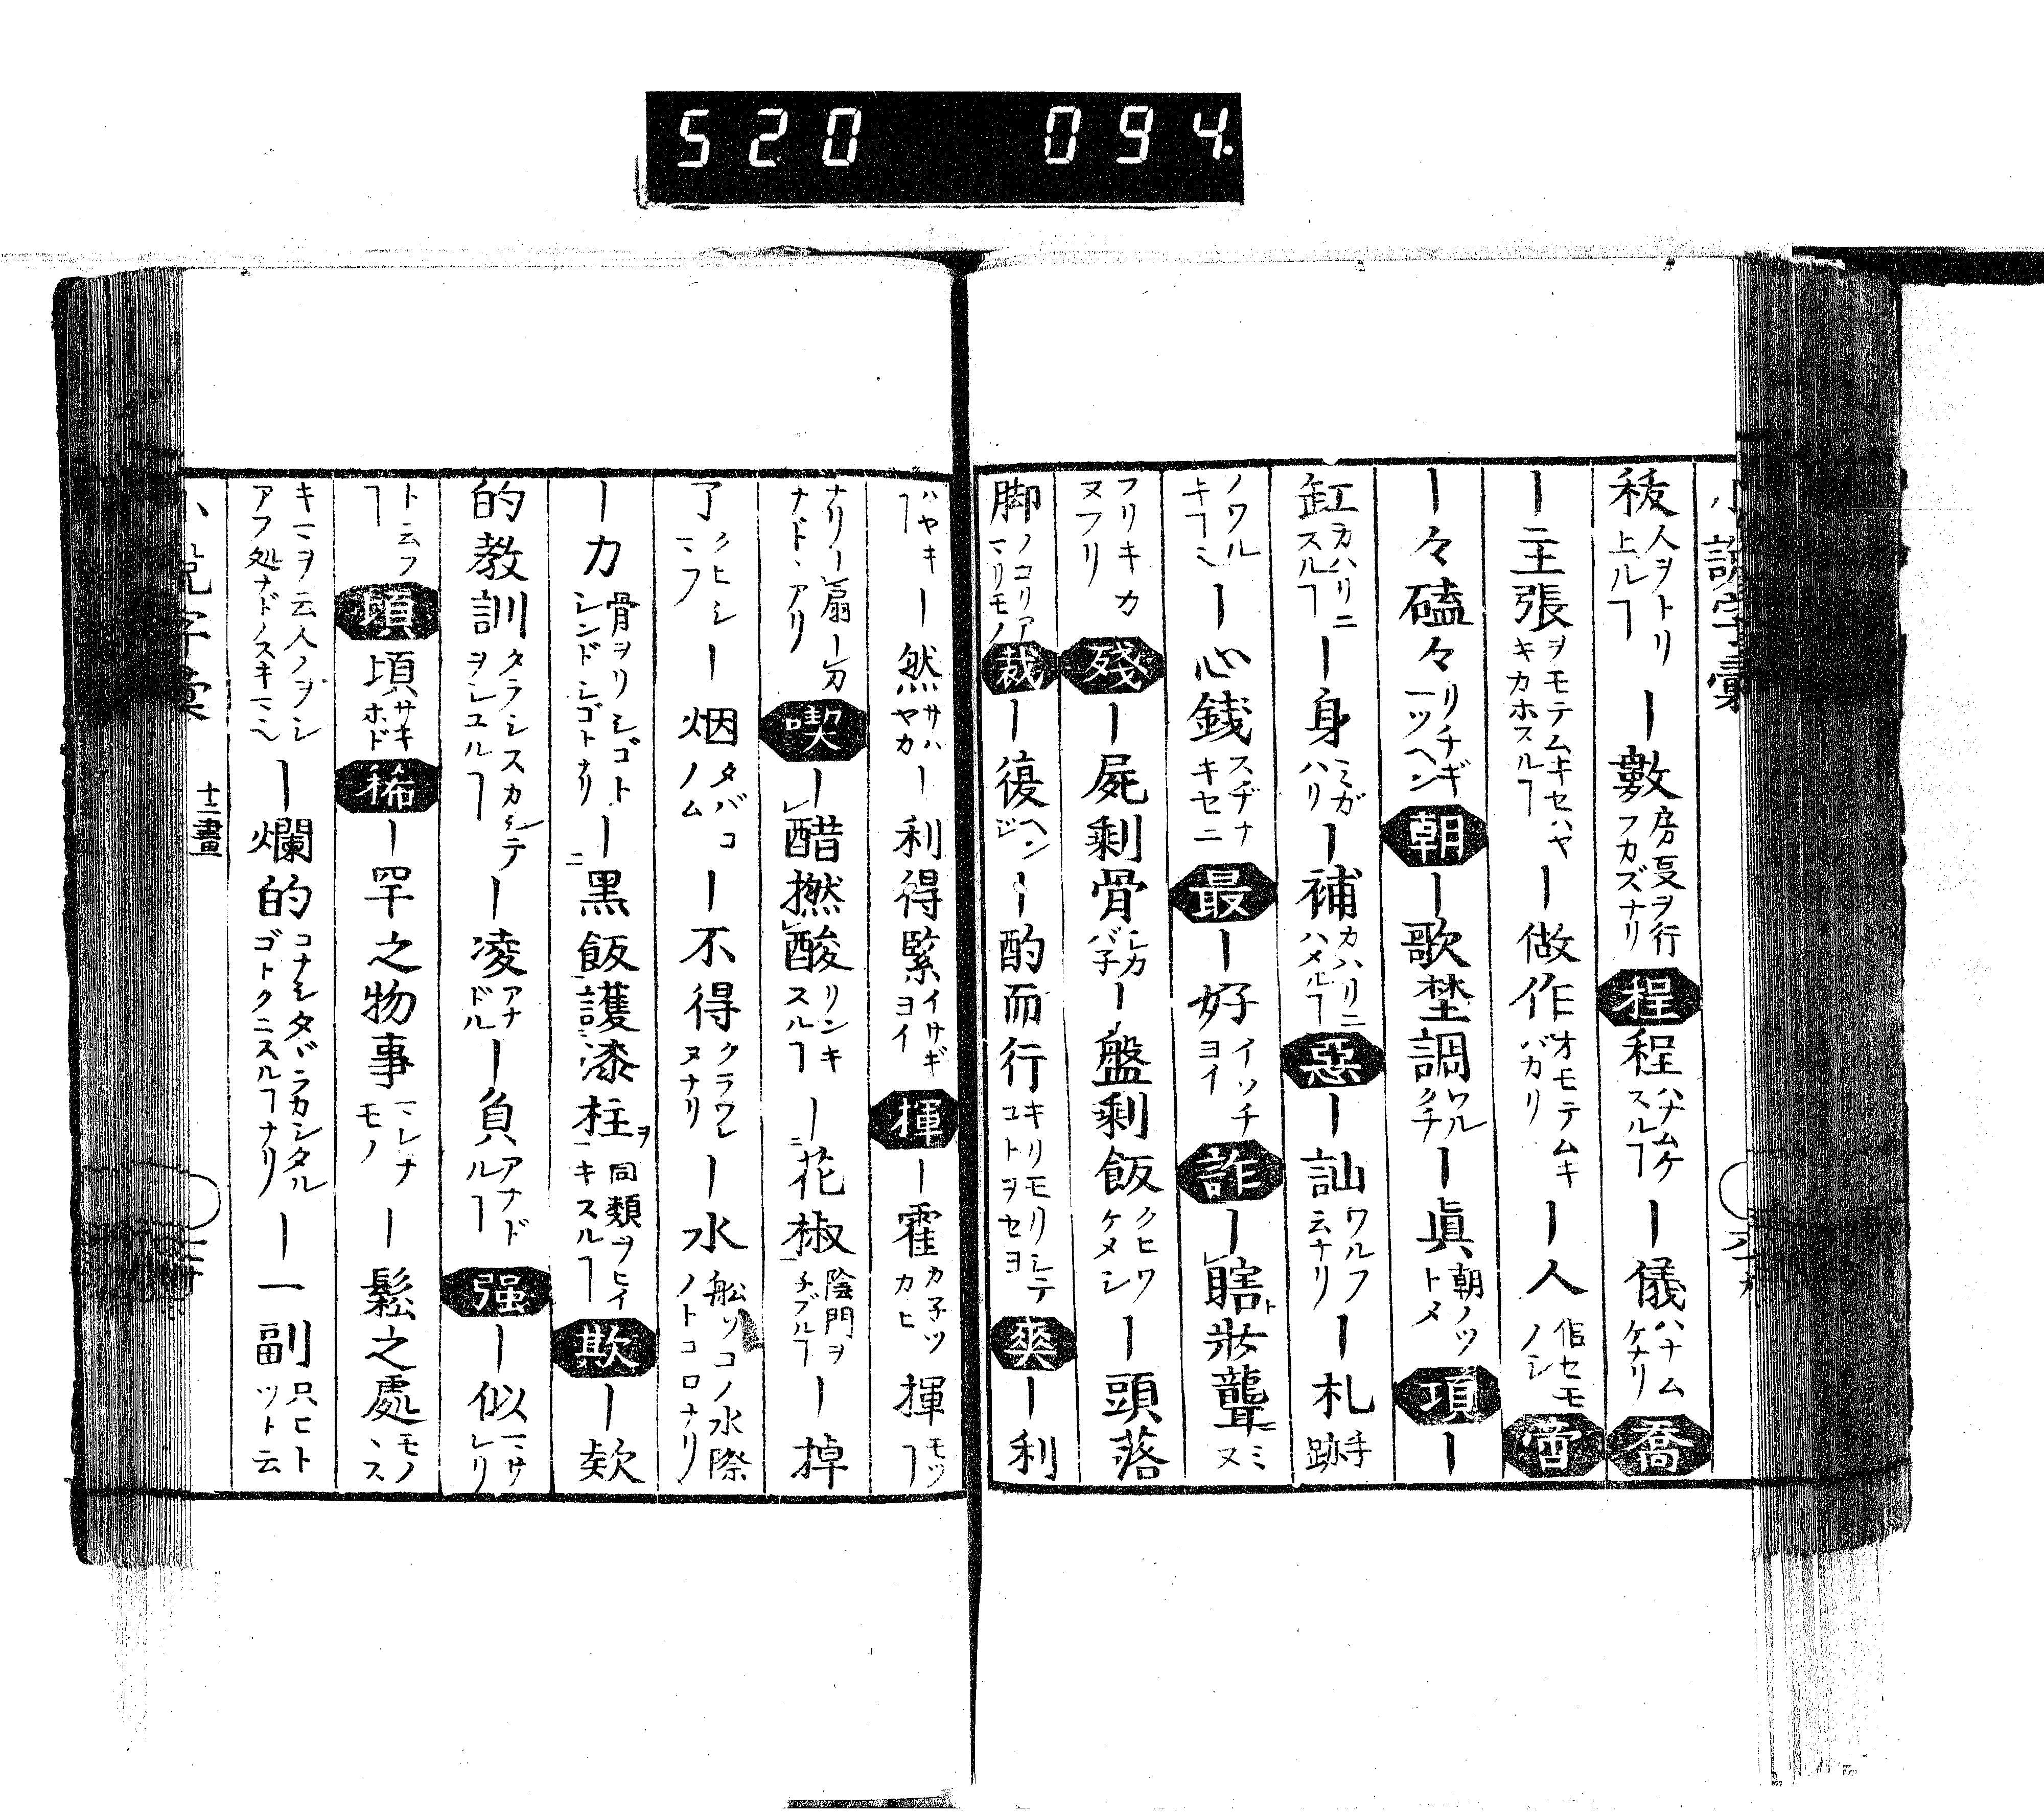 520 094.
小說字彙
稜 人ヲトリ上ルヿ ー數 房事ヲ行フカズナリ 程 程 ハナムケスルヿ ー儀 ハナムケナリ 喬
ー主張 ヲモテムキセハヤキカホスルヿ ー做作 オモテムキバカリ ー人 俗セモノシ 畨
ー々磕々 リチギ一ツヘン 朝 ー歌埜調 ワルクチ ー眞 朝ノツトメ 項 ー
缸 カハリニスルヿ ー身 ミガハリ ー補 カハリニハメルヿ 惡 ー訕 ワルフ云ナリ ー札 手跡
ノワルキヿ ー心錢 スヂナキセニ 最 ー好 イツチヨイ 詐 ー瞎妝聾
フリキカヌフリ 殘 ー屍剩骨 シカバ子 ー盤剩飯 クヒワケメシ ー頭落
脚 ノコリアマリモノ 裁 ー復 ヘンジ ー酌而行 キリモリシテコトヲセヨ 爽 ー利
ハヤキヿ ー然 サハヤカ ー利得緊 イサギヨイ 揮 ー霍 カ子ツカヒ 揮
ナリ ー扇ー刀ナドヽアリ 喫 ー醋撚酸 リンキスルヿ ー花椒 陰門ヲ ー掉
了 クヒシマフ ー烟 タバコノム ー不得 クラワレヌナリ ー水 舩ソコノ水際ノトコロナリ
ー力 骨ヲリシゴトシンドシゴトナリ ー黑飯護漆柱 同類ヲヒイキスルヿ 欺 ー欵
的教訓 タラシスカシテヲシユルヿ ー凌 アナドル ー負 アナドルヿ 强 ー似 マサレリ
ト云フヿ 頃 頃 サキホド 稀 ー罕之物事 マレナモノ ー鬆之處 モノヽス
キマヲ云人ノヲシアフ処ナドノスキマ ー爛的 コナシタゴトクニスルヿナリ ー一副 只ヒトツト云
小說字彙 十二畫